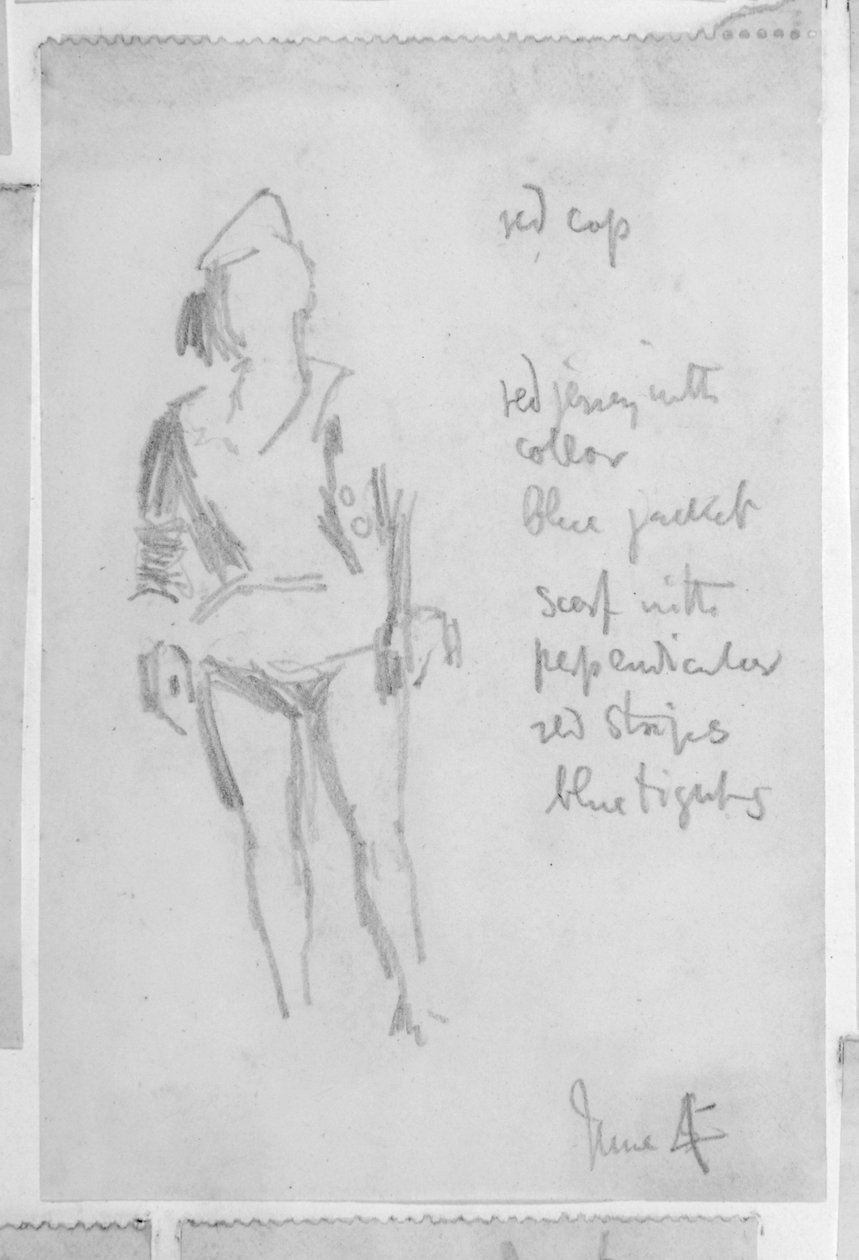 red cap
red jersey with
collar
blue jacket
scarf with
perpendicular
red stripes
blue tights
June